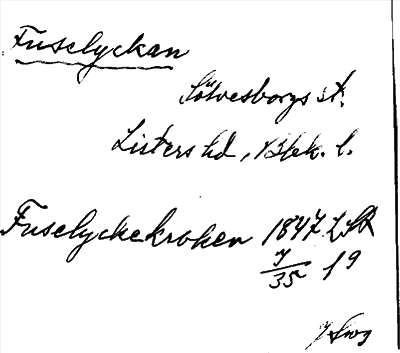 Fuselyckan
Sölvesborgs st.
Listers hd, Blek. l.
Fuselyckekroken 1847 LSK
7/35 f 9